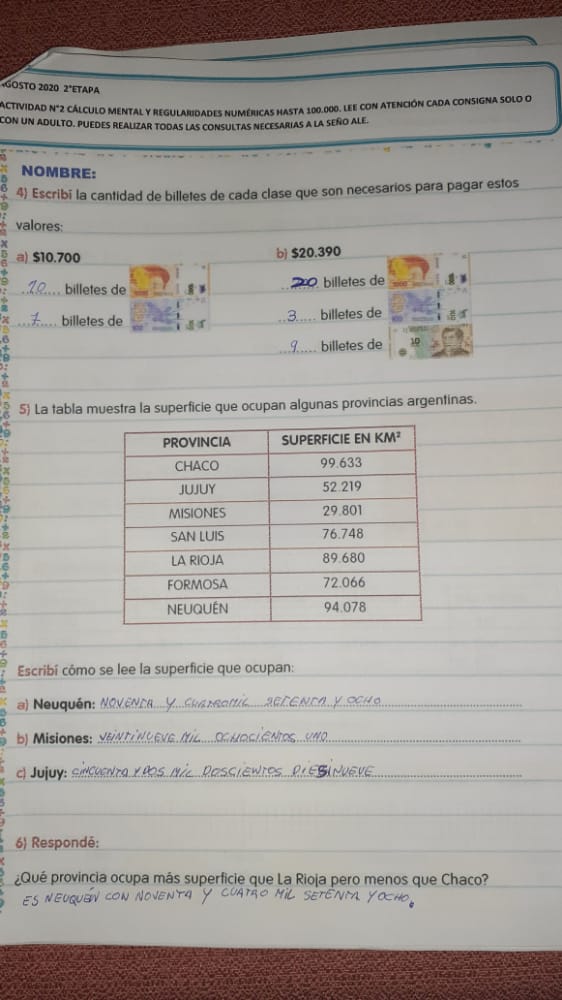 AGOSTO 2020 2°ETAPA
ACTIVIDAD N°2 CÁLCULO MENTAL Y REGULARIDADES NUMÉRICAS HASTA 100.000. LEE CON ATENCIÓN CADA CONSIGNA SOLO O
CON UN ADULTO. PUEDES REALIZAR TODAS LAS CONSULTAS NECESARIAS A LA SEÑO ALE.
NOMBRE:
4) Escribí la cantidad de billetes de cada clase que son necesarios para pagar estos
valores:
a) $10.700
10 billetes de
7 billetes de
b) $20.390
200 billetes de
3 billetes de
9 billetes de
10
5) La tabla muestra la superficie que ocupan algunas provincias argentinas.
PROVINCIA SUPERFICIE EN KM²
CHACO 99.633
JUJUY 52.219
MISIONES 29.801
SAN LUIS 76.748
LA RIOJA 89.680
FORMOSA 72.066
NEUQUÉN 94.078
Escribí cómo se lee la superficie que ocupan:
a) Neuquén: NOVENTA Y CUATROMIL SETENTA Y OCHO
b) Misiones: VEINTINUEVE MIL OCHOCIENTOS UNO
c) Jujuy: CINCUENTA Y DOS MIL DOSCIENTOS DIESINUEVE
6) Respondé:
¿Qué provincia ocupa más superficie que La Rioja pero menos que Chaco?
ES NEUQUÉN CON NOVENTA Y CUATRO MIL SETENTA Y OCHO.